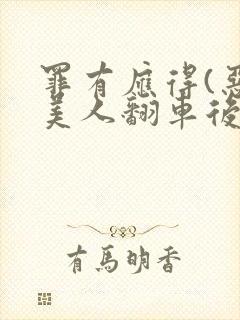 罪有應得(惡
美人翻車後
有馬明香